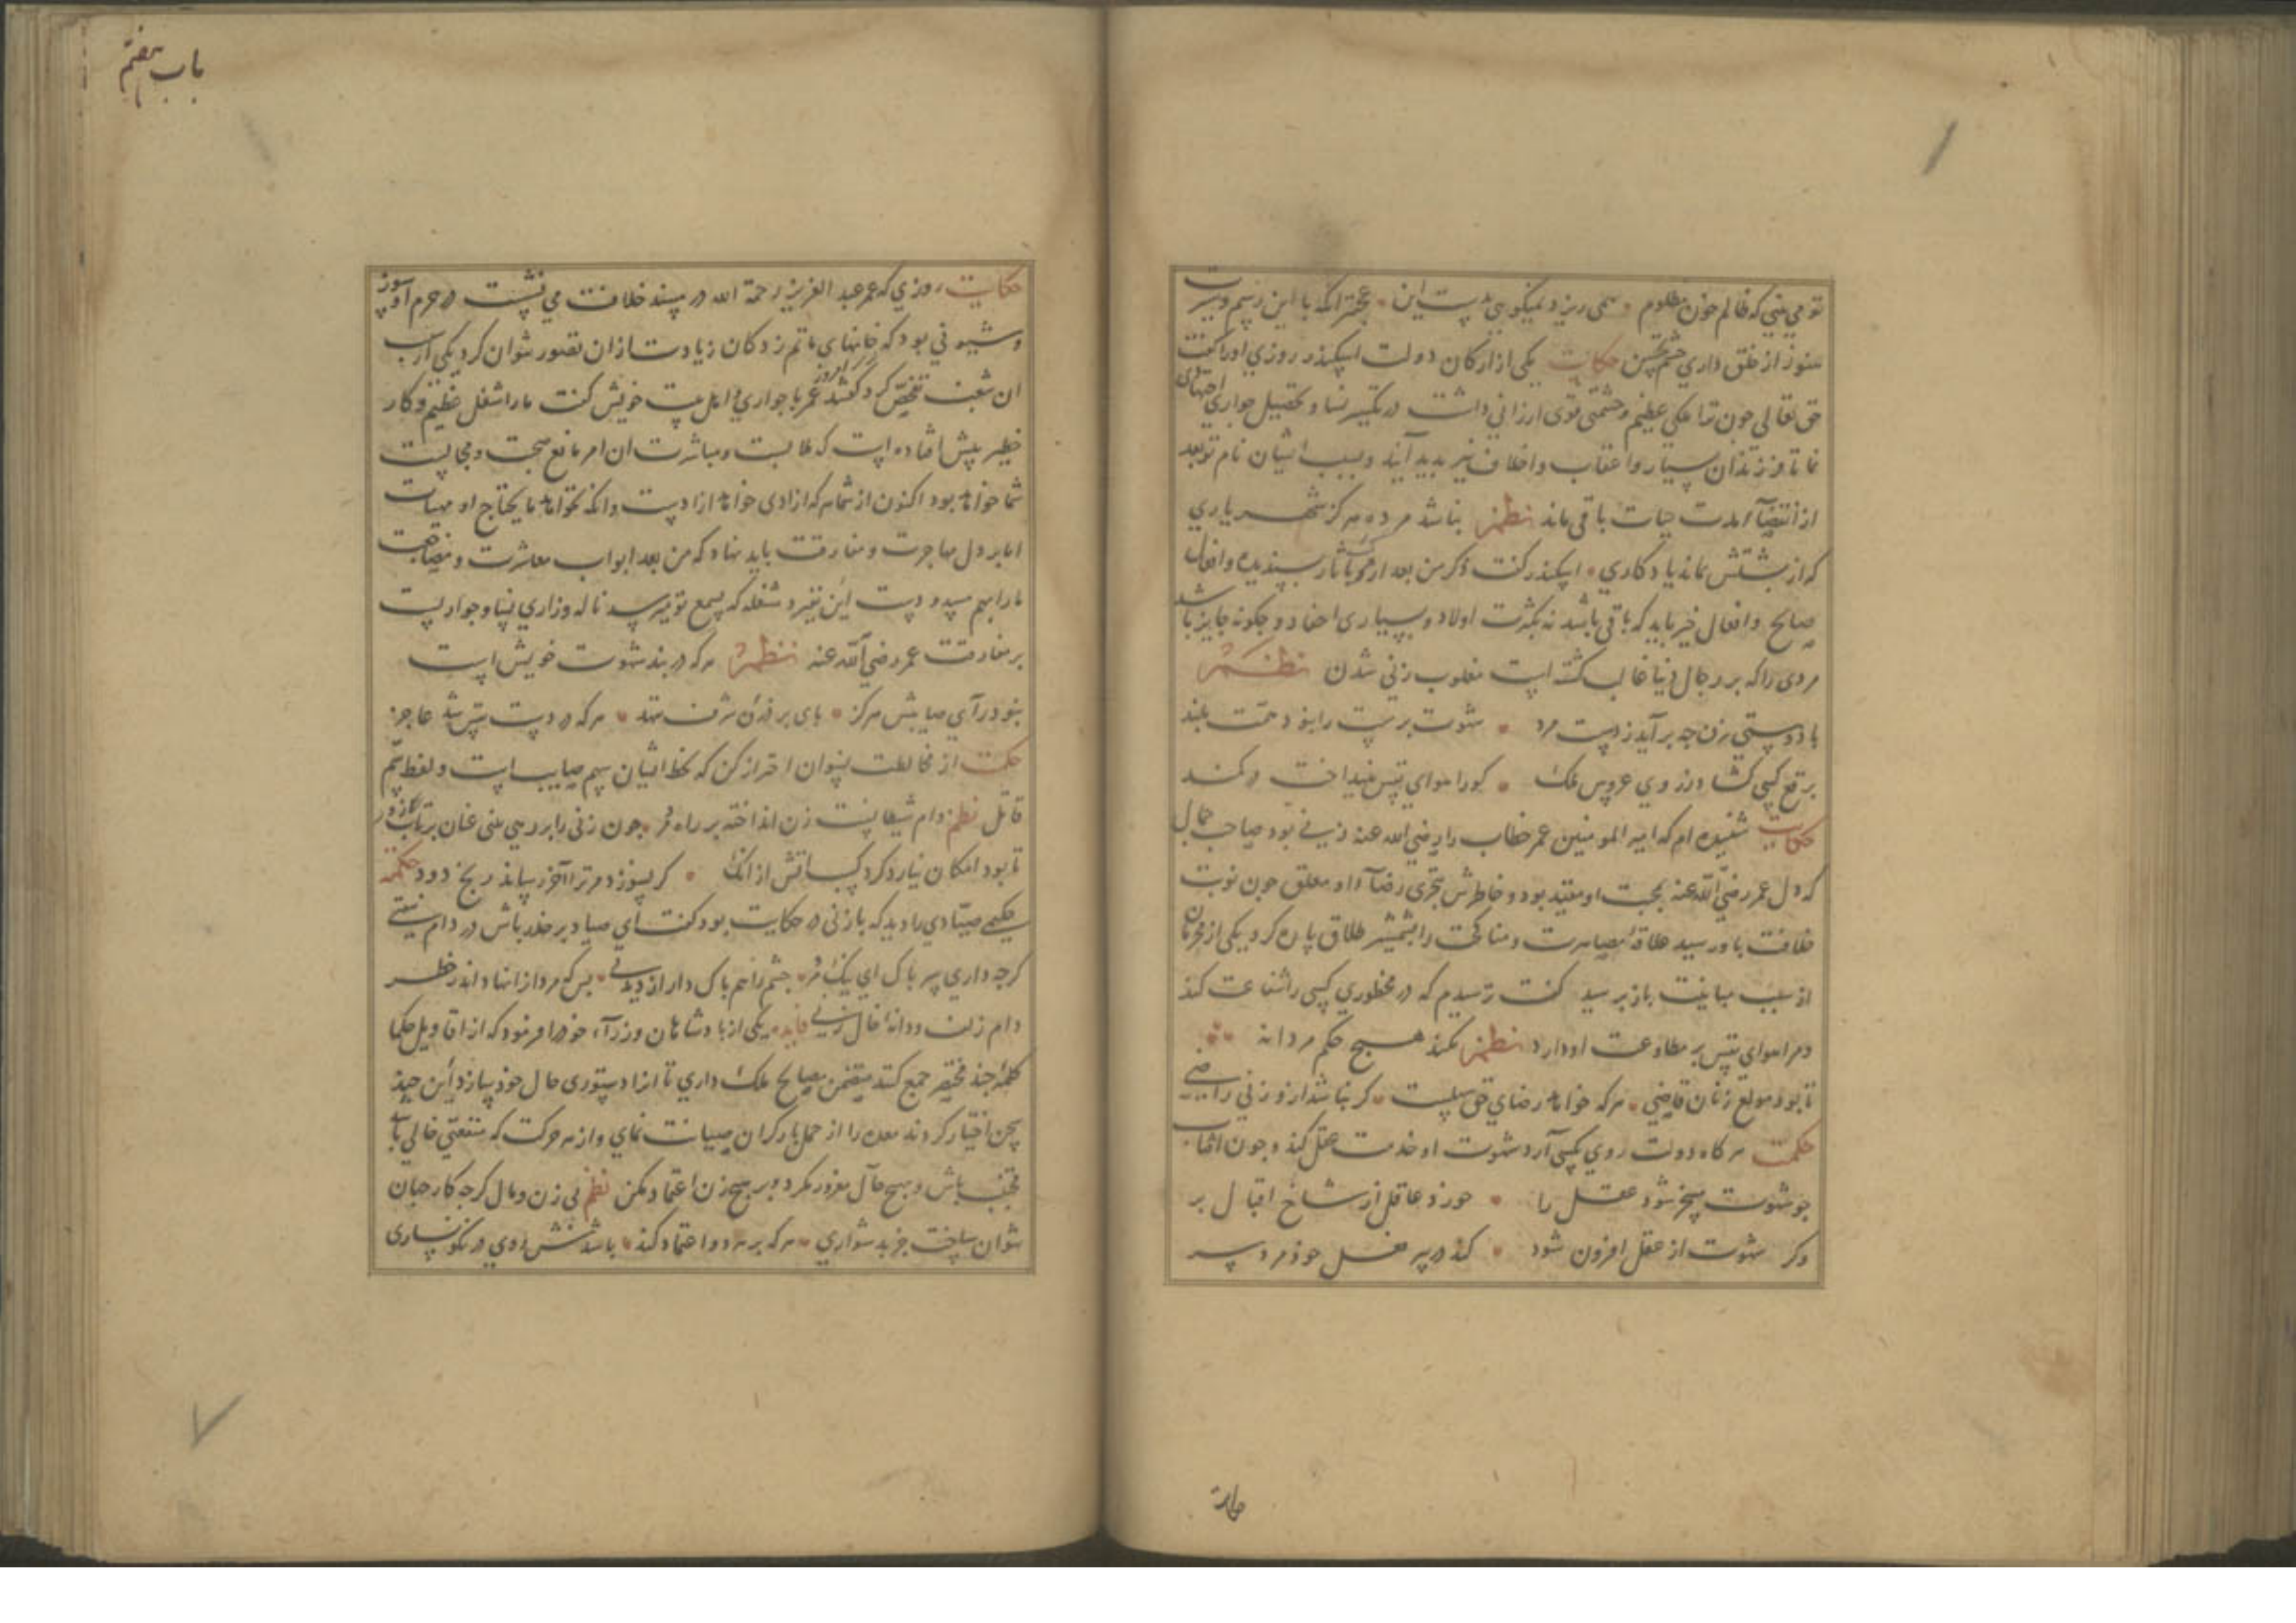 تو می بینی که ظالم خون مظلوم همی ریزد نمیکویی بدست این عجبتر انکه با این رسم و سیرت
هنوز از خلق داری چشم تحسین حکایت یکی از ارکان دولت اسکندر روزی او را کفت
حق تعالی چون ترا ملکی عظیم و حشمتی قوی ارزانی داشت در تکثیر نسا و تحصیل جواری اجتهادی
نما تا فرزندان بسیار و اعقاب و اخلاف نیز پدید آیند و بسبب ایشان نام تو بعد
از انقضآء مدت حیات باقی ماند نظم نباشد مرده هرکز شهریاری
که از پشتش بماند یادکاری اسکندر کفت ذکر من بعد از من باثار پسندیده و افعال
صالح و افعال خیر باید که باقی باشد نه بکثرت اولاد و بسیاری احفاد و چکونه جایز باشد
مردی را که بر رجال دنیا غالب کشته است مغلوب زنی شدن نظم
با دوستی زن چه برآید ز دست مرد شهوت پرست را نبود همت بلند
برقع کسی کشاد ز روی عروس ملک کو را هوای نفس نینداخت در کمند
حکایت شنیده ام که امیر المومنین عمر خطاب را رضی الله عنه زنی بود صاحب جمال
که دل عمر رضی الله عنه بمحبت او مقید بود و خاطرش بتحری رضآء او معلق چون نوبت
خلافت باو رسید علاقۀ مصاهرت و مناکحت را بشمشیر طلاق پاره کرد یکی از محرمان
از سبب مباینت باز پرسید کفت ترسیدم که در محظوری کسی را شفاعت کند
و مرا هوای نفس بر مطاوعت او دارد نظم نکند هیچ حکم مردانه
تا بود مولع زنان قاضی هرکه خواهد رضای حق سهلست کر نباشد ازو زنی راضی
حکمت هرکاه دولت روی بکسی آرد شهوت او خدمت عقل کند و چون
چو شهوت مسخر شود عقل را خورد عاقل از شاخ اقبال بر
وکر شهوت از عقل افزون شود کند در سر فعل خود مرد سر
حکایت
باب هفتم
حکایت روزی که عمر عبد العزیز رحمة الله در مسند خلافت می نشست در حرم او سوز
و شیونی بود که خانهای ماتم زدکان زیادت ازان تصور نتوان کرد یکی از سبب
ان شعب تفحص کرد کفتند امروز عمر با جواری و اهل بیت خویش کفت ما را شغل عظیم و کار
خطیر پیش افتاده است که ملابست و مباشرت ان امر مانع صحبت و مجالست
شما خواهد بود اکنون از شما هر که ازادی خواهد ازادست و انکه نخواهد ما یحتاج او مهیاست
اما بر دل مهاجرت و مفارقت باید نهاد که من بعد ابواب معاشرت و مضاجعت
ما را بهم مسدودست این نفیر و مشغله که بسمع تو میرسد ناله و زاری نسا و جواریست
بر مفارقت عمر رضی الله عنه نظم هر که در بند شهوت خویش است
نبود رآی صایبش هرکز پای بر فرق شرف ننهد هر که در دست نفس شد عاجز
حکمت از مخالطت نسوان احتراز کن که لحظ ایشان سهم صایب است و لفظ سم
قاتل نظم دام شیطانست زن انداخته بر راه مرد چون زنی را بر رهی بینی عنان برتاب
تا بود امکان نیارد کرد کس باتش از انک کر نسوزد مر ترا آخر رساند رنج دود حکمة
حکیمی صیادی را دید که با زنی در حکایت بود کفت ای صیاد بر حذر باش در دام نیفتی
کرچه داری سر پاک ای نیک مرد چشم را هم پاک دار از دیدنی بس که مرد از انها در خطر
دام زلف و دانۀ خال زنی فایده یکی از پادشاهان وزرآء خود را فرمود که از اقاویل حکما
کلمۀ چند مختصر جمع کنند متضمن مصالح ملک داری تا انرا دستوری حال خود سازد این چند
سخن اختیار کردند معده را از حمل بار کران صیانت نمای و از هر حرکت که منفعتی خالی باشد
مجتنب باش و بهیچ مآل مغرور مکرد و بر هیچ زن اعتماد مکن نظم بی زن و مال کرچه کار جهان
نتوان ساخت جز بدشواری هر که بر هر دو اعتماد کند باشدش روی در نکونساری